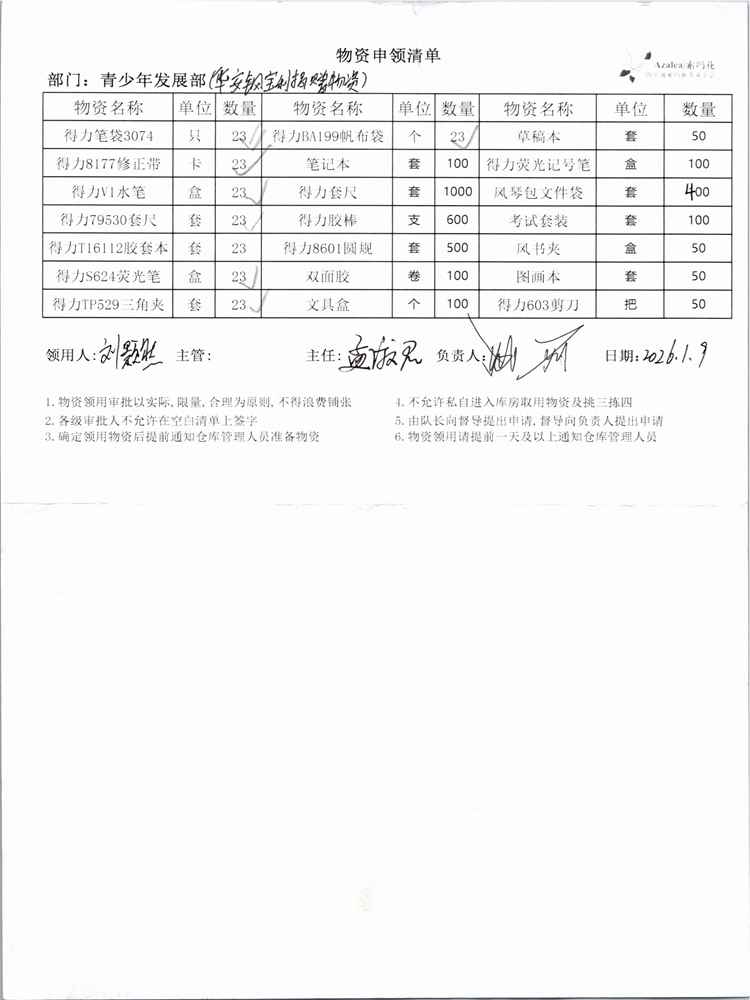 物资申领清单
Azalea 索玛花
部门：青少年发展部(华安钢宝利捐赠物资)
物资名称 单位 数量 物资名称 单位 数量 物资名称 单位 数量
得力笔袋3074 只 23 得力BA199帆布袋 个 23 草稿本 套 50
得力8177修正带 卡 23 笔记本 套 100 得力荧光记号笔 盒 100
得力V1水笔 盒 23 得力套尺 套 1000 风琴包文件袋 套 400
得力79530套尺 套 23 得力胶棒 支 600 考试套装 套 100
得力T16112胶套本 套 23 得力8601圆规 套 500 风书夹 盒 50
得力S624荧光笔 盒 23 双面胶 卷 100 图画本 套 50
得力TP529三角夹 套 23 文具盒 个 100 得力603剪刀 把 50
领用人: 主管: 主任: 负责人: 日期:2026.1.9
1.物资领用审批以实际,限量,合理为原则,不得浪费铺张
2.各级审批人不允许在空白清单上签字
3.确定领用物资后提前通知仓库管理人员准备物资
4.不允许私自进入库房取用物资及挑三拣四
5.由队长向督导提出申请,督导向负责人提出申请
6.物资领用请提前一天及以上通知仓库管理人员